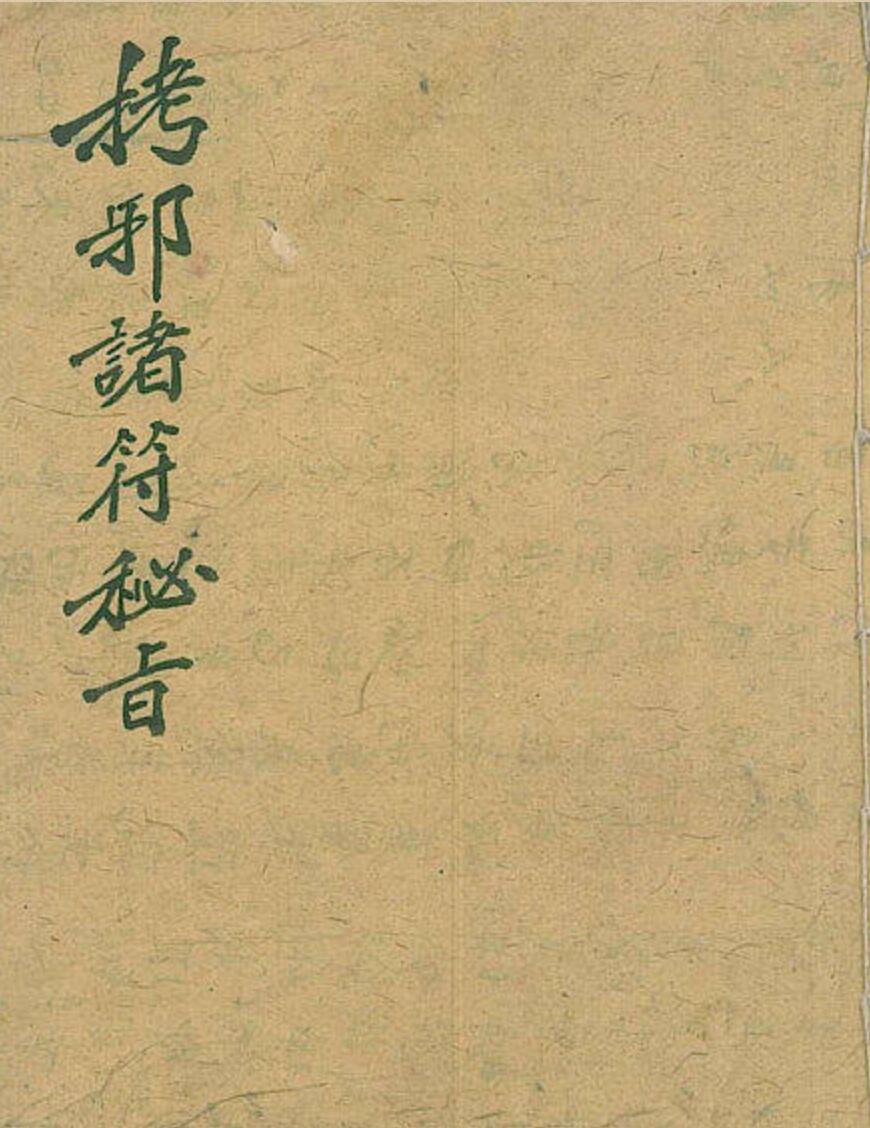 拷邪諸符秘旨